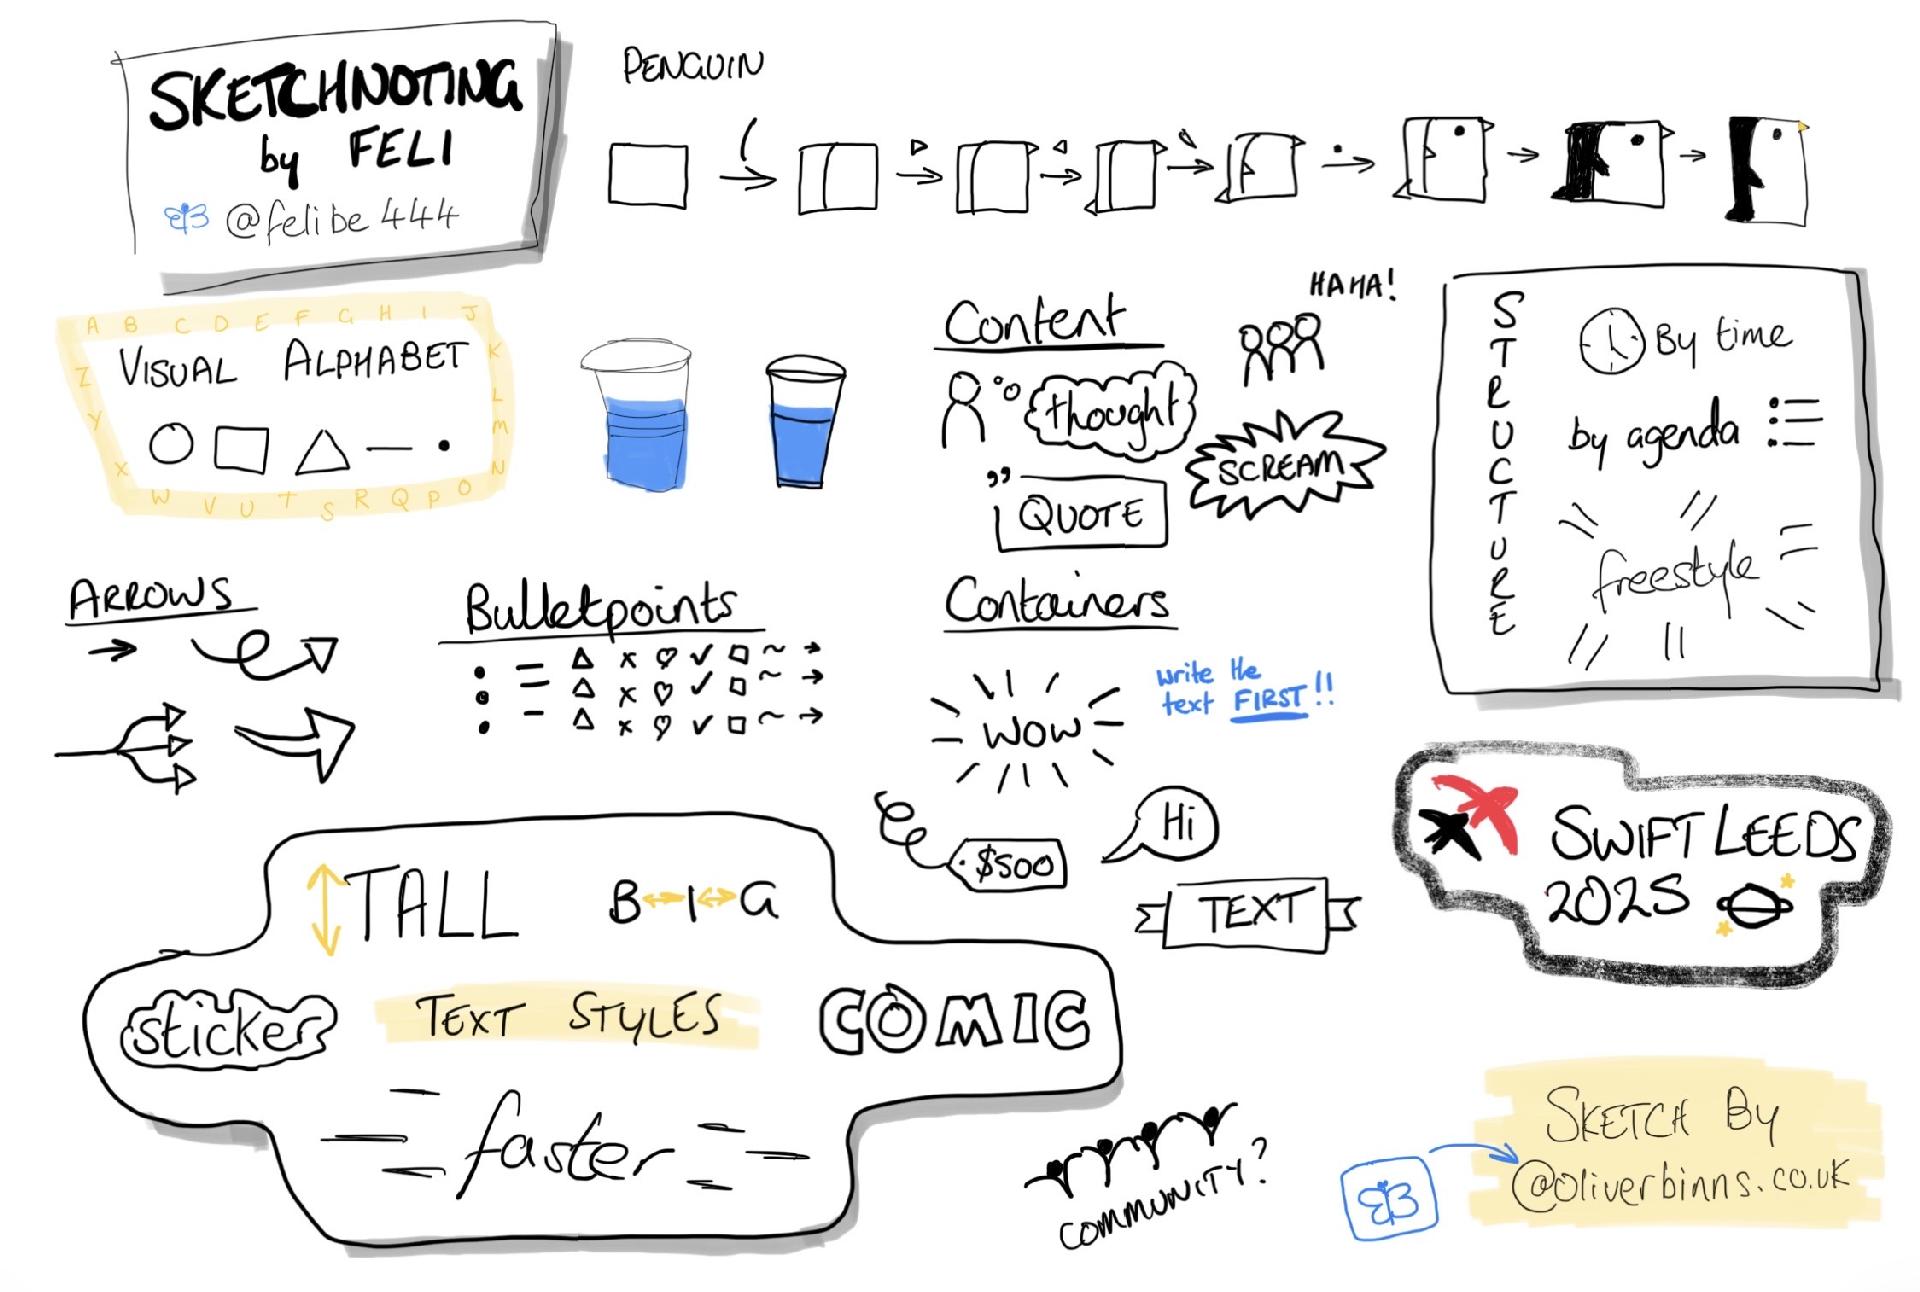 SKETCHNOTING
by FELI
@felibe444
PENGUIN
A B C D E F G H I J
K
L
M
N
O
P
Q
R
S
T
U
V
W
X
Y
Z
VISUAL ALPHABET
Content
thought
” QUOTE
HAHA!
SCREAM
STRUCTURE
By time
by agenda
freestyle
ARROWS
Bulletpoints
Containers
WOW
write the
text FIRST!!
$500
Hi
TEXT
SWIFT LEEDS
2025
TALL
BIG
sticker
TEXT STYLES
COMIC
faster
COMMUNITY?
SKETCH BY
@oliverbinns.co.uk